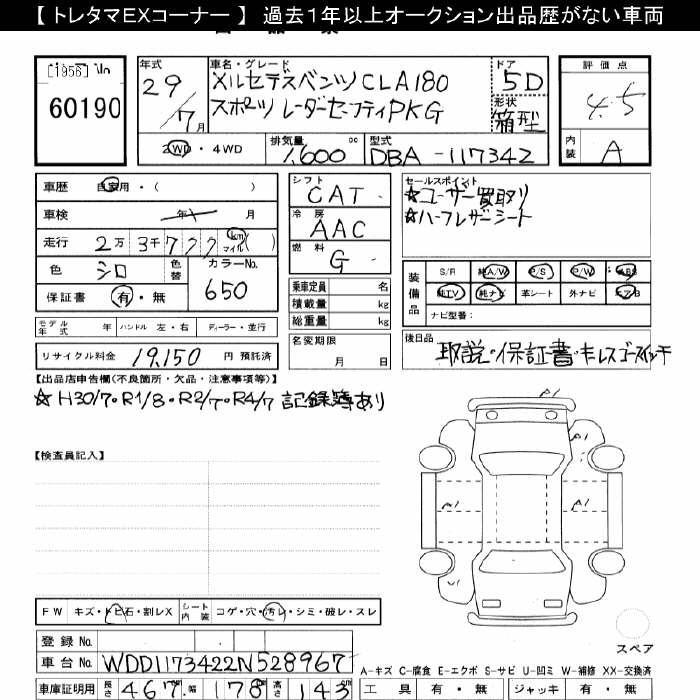 【 トレタマEXコーナー 】 過去1年以上オークション出品歴がない車両
[1956] No
60190
年式 車名・グレード ドア 評価点
29 メルセデスベンツCLA180 5D 4.5
7月 スポーツ レーダーセーフティPKG 形状 箱型
2WD・4WD 排気量 1,600 cc 型式 DBA-117342 内装 A
車歴 自家用・( )
車検 年 月
走行 2万3千777 km マイル( )
色 シロ 色替 カラーNo. 650
保証書 有・無
モデル年式 年 ハンドル 左・右 ディーラー・並行
リサイクル料金 19,150 円 預託済
シフト CAT
冷房 AAC
燃料 G
乗車定員 名
積載量 kg
総重量 kg
名変期限
月 日
セールスポイント
☆ユーザー買取り
☆ハーフレザーシート
装備品 S/R 純A/W P/S P/W ABS
純TV 純ナビ 革シート 外ナビ エアB
ナビ型番:
後日品
取説・保証書・キーレスゴースイッチ
【出品店申告欄(不良箇所・欠品・注意事項等)】
☆H30/7・R1/8・R2/7・R4/7 記録簿あり
【検査員記入】
A1
A1
A1
A1
FW キズ・トビ石・割レX シート内装 コゲ・穴・汚レ・シミ・破レ・スレ
スペア
登録 No.
車台 No. WDD1173422N528967
A-キズ C-腐食 E-エクボ S-サビ U-凹ミ W-補修 XX-交換済
車庫証明用 長さ 467 幅 178 高さ 143 工具 有・無 ジャッキ 有・無